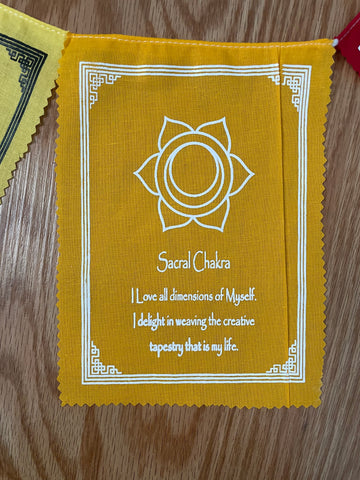 Sacral Chakra
I Love all dimensions of Myself.
I delight in weaving the creative
tapestry that is my life.